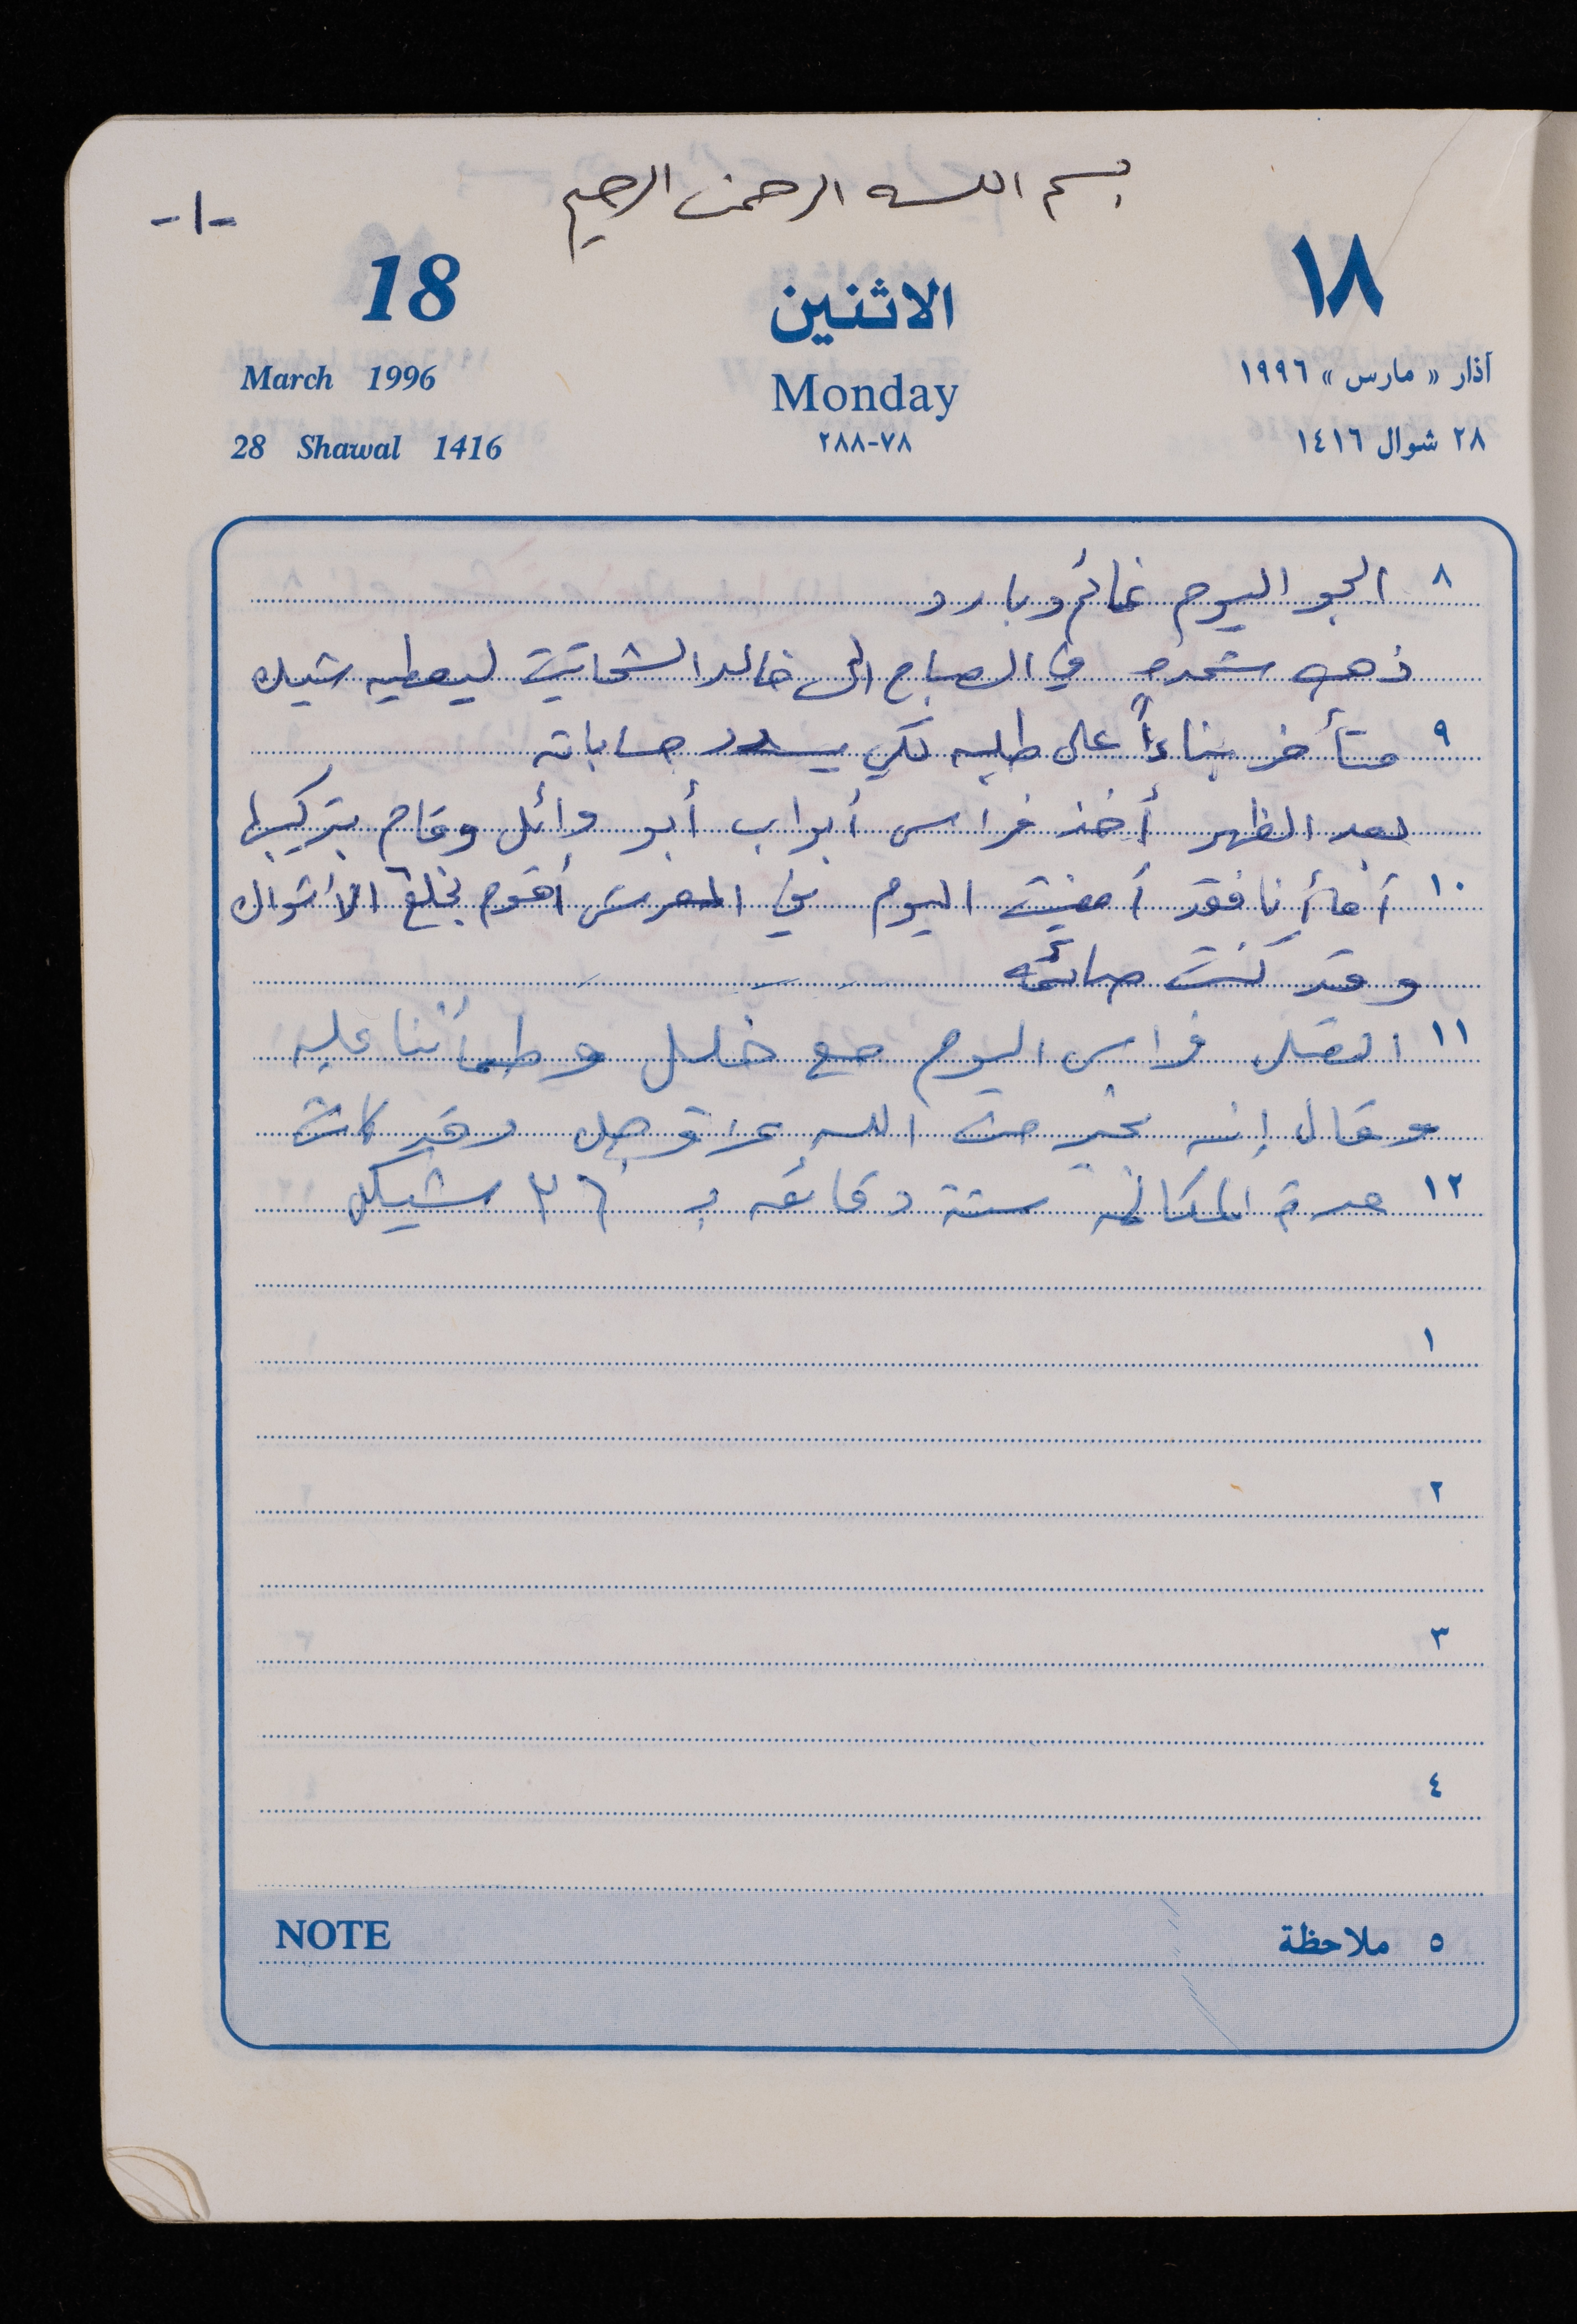 بسم الله الرحمن الرحيم
-١-
18 الاثنين ١٨
March 1996 Monday آذار « مارس » ١٩٩٦
28 Shawal 1416 ٧٨-٢٨٨ ٢٨ شوال ١٤١٦
٨ الجو اليوم غائم وبارد
ذهب في الصباح الى خالد ليعطيه شيك
٩ متأخر بناءاً على طلبه لكي يسدد حساباته
بعد الظهر أخذ فراس أبواب أبو وائل وقام بتركيبها
١٠ أما أنا فقد أمضيت اليوم في المعرش أقوم بخلع الأشواك
وقد كنت صائمه
١١ اتصل فراس اليوم مع خليل وطمأننا عليه
وقال إنه بخير من الله عز وجل وقد كانت
١٢ مدة المكالمة ستة دقائق بـ ٣٦ شيكل
١
٢
٣
٤
NOTE ٥ ملاحظة